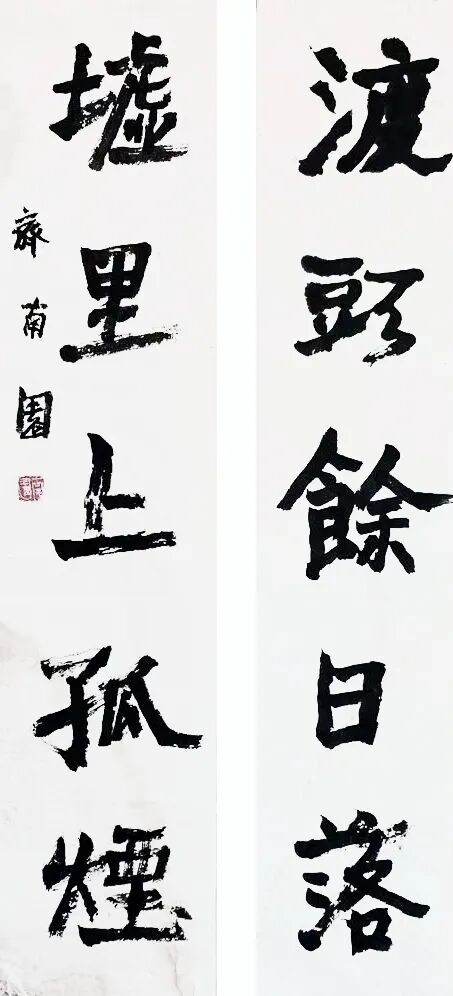 渡頭餘日落
墟里上孤煙
南園